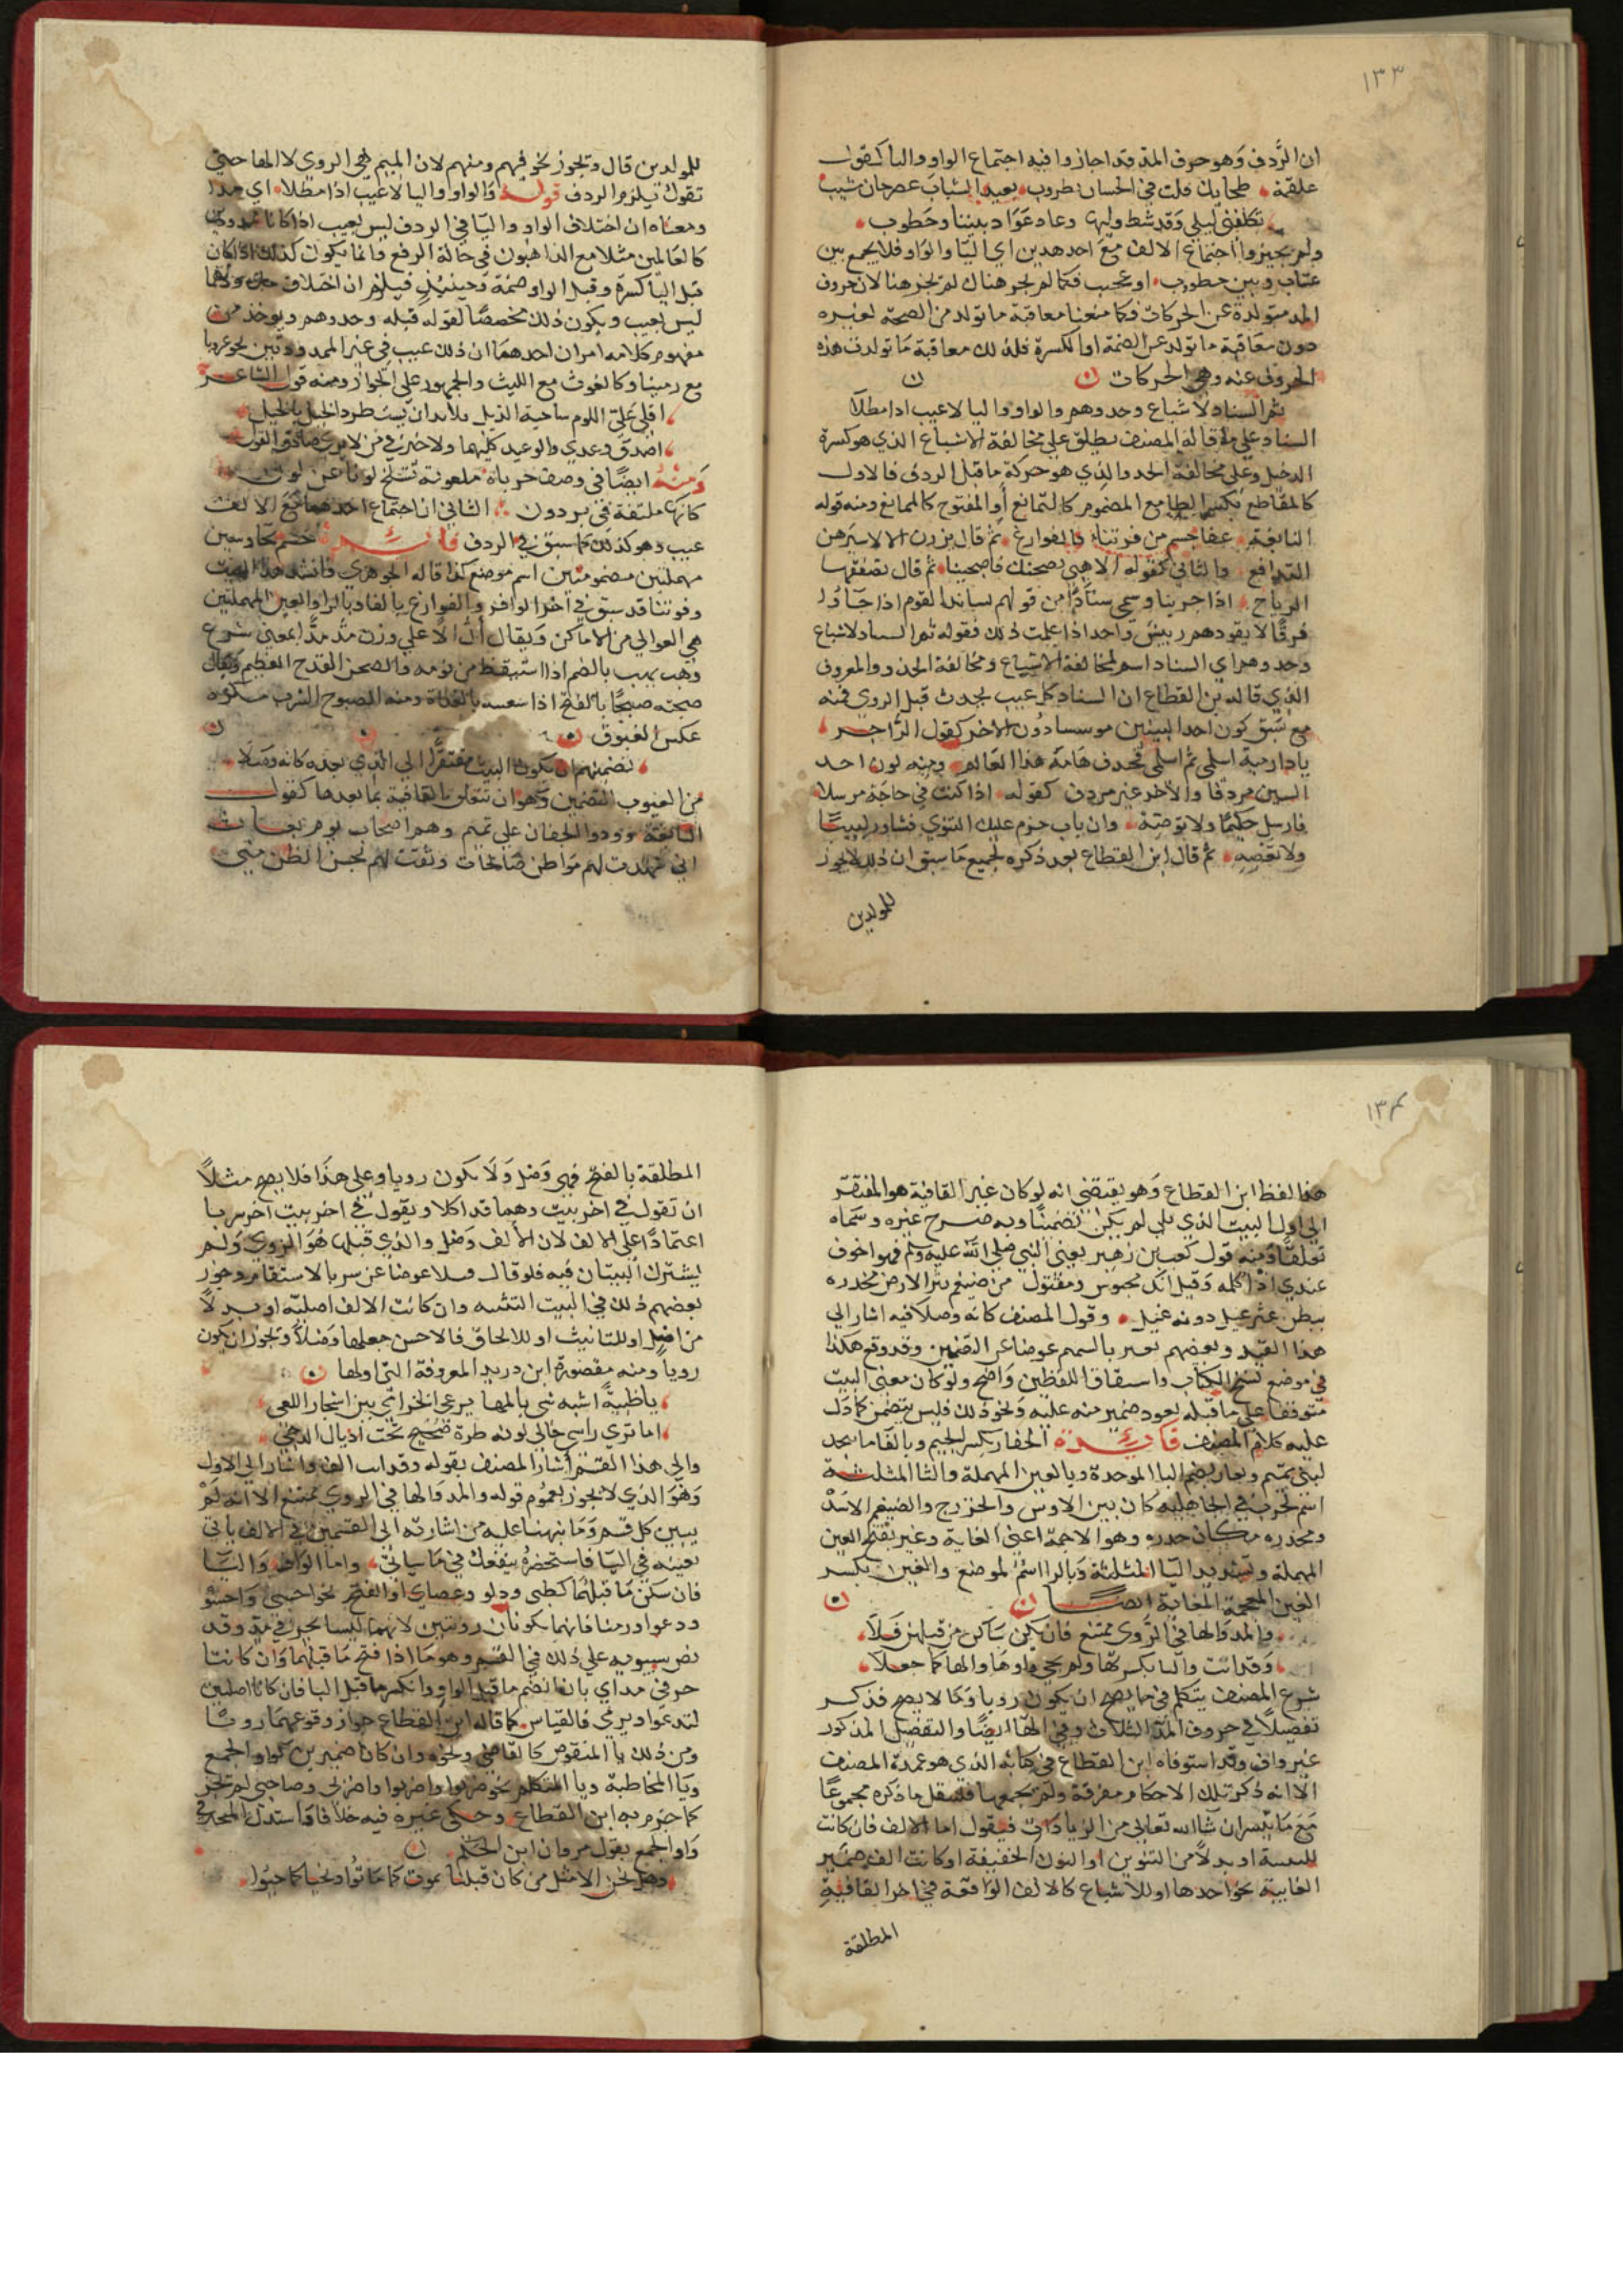 ١٣٣
ان الرَّدف وَهو حرف المدّ قد اجازوا فيه اجتماع الواو واليا كقول
علقمة طحا بك قلب في الحسان طروب بعيد الشباب عصر حان مشيب
تكلفني ليلى وَقد شط وليها وعادت عَوَاد بيننا وخطوب
ولم يجيزوا اجتماع الالف مَعَ احد هذين اي اليَا والوَاو فلا يجمع بين
عتاب وبين خطوب او عجيب فكما لم يجز هناك لم تجز هنا لان حروف
المد متولدة عن الحركات فكما منعنا معاقبة ما تولد من الفتحة لغيره
دون معاقبة ما تولد عن الضمة او الكسرة فلذلك معاقبة مَا تولدت هذه
الحروف عنه وهي الحركات
ثم السناد لاشباع وحدوهم والواو واليا لا عيب اذا مطلا
السناد على ما قاله المصنف يطلق على مخالفة الاشباع الذي هو كسرة
الدخيل وعلى مخالفة الحدو الذي هو حركة ما قبل الردف فالاول
كالمقاطع بكسر الطا مع المضموم كالتمانع أو المفتوح كالممانع ومنه قوله
النابغة عفا جسم من فرتنا فالفوارع ثم قال يزرن الالا سيرهن
التدافع والثاني كقوله الا هبي بصحنك فاصبحينا ثم قال تصفقها
الرياح اذا جرينا وسمي سنادًا من قولهم تساند القوم اذا جَاؤا
فرقًا لا يقودهم رييس واحد اذا علمت ذلك فقوله ثم السناد لاشباع
وحدوهم اي السناد اسم لمخالفة الاشباع ومخالفة الحذو والمعروف
الذي قاله بن القطاع ان السناد كل عيب يحدث قبل الروي فمنه
مع سَبق كون احد البيتين موسسا دُون الاخر كقول الرَّاجز
يا دار مية اسلمي ثم اسلمي فخندف هَامَة هذا العَالم ومنه كون احد
البيتين مردفا والاخر غير مردف كقوله اذا كنت في حاجَة مرسلا
فارسل حَكيمًا ولا توصِهِ وان باب حزم عليك التوي فشاور لبيبًا
ولا تعصِهِ ثم قال ابن القطاع بعد ذكره لجميع مَا سبق ان ذلك لا يجوز
للمولدين
للمولدين قال ويجوز نحو فيهم ومنهم لان الميم هي الروي لا الها حتى
تقول يلزم الردف قوله وَالواو واليا لا عيب اذا مطلا اي مدا
ومعناه ان اختلاف الواو واليَا في الردف ليس بعيب اذا كانا ممدودين
كالعَالمين مثلا مع الذاهبون في حالة الرفع وانما يكون كذلك اذا كان
قبل اليا كسرة وقبل الواو ضمة فحينئذٍ فيلزم ان اختلاف
ليس بعيب ويكون ذلك مخصصًا لقوله قبله وحدوهم ويوخذ من
مفهوم كلامه امران احدهما ان ذلك عيب في غير الممدودتين نحو
مع رمينا وكالغوث مع الليث والجمهور على الجواز ومنه قول الشاعر
اقلي عَليّ اللوم ساحية الذيل فلا بد ان يستطرد الخيل بالخيل
اصدق وعدي والوعيد كليهما ولا خير في من لا يرى صادق القول
وَمنهُ ايضًا في وصف حرباة ملعونة تسلخ لونا عن لون
كانها ملتفة في بردون الثاني ان اجتماع احدهما مَعَ الالف
عيب وهو كذلك كما سبق في الردف فَائدة حُسُم بحا وسين
مهملتين مضمومتين اسم موضع كذا قاله الجوهري وانشد هذا البيت
وفرتنا قد سبق في اخر الوافر والفوارع بالفا وبالرا والعين المهملتين
هي العوالي من الاماكن وَيقال أَلَّ الًّا على وزن مَدَّ مدًّا بمعنى شرع
وهب يهب بالضم اذا استيقظ من نومه والصحن القدح العظيم ويقال
صبحته صبحًا بالفتح اذا سقيته بالغداة ومنه الصبوح للشرب بكرة
عكس الغبوق
تضمينهم ان يكون البيت مفتقرًا الى الذي بعده كانه وَصَلَا
من العيوب التضمين وَهو ان تتعلق القافية بما بعدها كقول
النابغة وردوا الجفار على تميم وهم اصحاب يوم بعاث
اني شهدت لهم مواطن صَالحات وثقت لهم بحسن الظن مني
١٣٤
هذا لفظ ابن القطاع وَهو يقتضي انه لو كان غير القافية هو المفتقر
الى اول البيت الذي يلي لم يكن تضمينًا وبه صرح غيره وَسَماه
تعلقًا وَمنه قول كعب بن زهير يعني النبي صلى الله عليه وسلم فهو اخوف
عندي اذ اكلمه وَقيل انك محبوس ومقتول من ضيغم بثر الارض مخدره
ببطن عثر غيل دونه غيل وقول المصنف كانه وصلَا فيه اشار الى
هذا القيد وبعضهم يعبر بالتتميم عوضا عن التضمين وقد وقع هكذا
في موضع نسخ الكتاب واشتقاق اللفظين وَاضح ولو كان معنى البيت
متوقفا على ما قبله بعود ضمير منه عليه وَنحو ذلك فليس بتضمين كما دَل
عليه كلام المصنف فَائدة الجفار بكسر الجيم وبالفا ما بنجد
لبني تميم وبعاث بضم البا الموحدة وبالعين المهملة والثا المثلثة
اسم لحرب في الجاهلية كان بين الاوس والخزرج والضيغم الاسَدُ
ومخدره مكان خدره وهو الاجمة اعني الغابة وعثر بفتح العين
المهملة وتشديد الثا المثلثة وَبالرا اسْمُ لموضع والغين بكسر
الغين المعجمة الغابة ايضًا
وبالمد والها في الرَّوي ممتنع فان يكن سَاكن من قبلهن فَلاَ
وَقد اتت واليا بكسرتها ولم يجي واوها والها كما جعلا
شرع المصنف يتكلم في ما يصح ان يكون رويا وَما لا يصح فذكر
تفصيلًا في حروف المد الثلاث وفي الهَا ايضًا والتفضيل المذكور
غير واف وقد استوفاه ابن القطاع في كتابه الذي هو عمدة المصنف
الا انه ذكر تلك الاحكام مفرقة ولم يجمعها فلننقل ما ذكره مجموعًا
مَعَ مَا تيسر ان شا الله تعالى من الزيادَات فنقول اما الالف فان كانت
للتثنية او بدلًا من التنوين او النون الخفيفة او كانت الف ضمَير
الغايبة نحو احدها او للاشباع كالالف الوَاقعة في اخر القافيةِ
المطلقة
المطلقة بالفتح فهي وَصل وَلَا تكون رويا وعلى هذا فلا يصح مثلاً
ان تقول في اخر بيت وهما قد اكلا ويقول في اخر بيت اخر سربا
اعتمادًا على الالف لان الألف وَصل والذي قبلها هُوَ الروي وَلم
يشترك البيتان فيه فلو قال وسلا عوضا عن سربا لاستقام وجوز
بعضهم ذلك في البيت التثنيه وان كانت الالف اصلية او بدلاً
من اصل او للتانيث او للالحاق فالاحسن جعلها وَصْلاً ويجوز ان يكون
روياً ومنه مقصورة ابن دريد المعروفة التى اولها
يا ظبيةً اشبه شي بالمها يرعى الخزامى بين اشجار اللقى
اما تري راسي حاكي لونه طرة صُبح تحت اذيال الدجى
والى هذا القسم أشار المصنف بقوله وقد اتت الف واشار الى الاول
وَهوَ الذي لا يجوز بعموم قوله والمد والها في الروي ممتنع الا انه لَمْ
يبين كل قسم وَمَا نبهنا عليه من اشارته الى القسمين في الالف ياتي
بعينه في اليَا فاستحضرهُ ينفعك في مَا سيأتي واما الوَاو وَاليَا
فان سكن مَا قبلهُمَا كظبى ودلو وعصاي او الفتح نحو اخشى وَاخشَو
ودعوا ورمنا فانهما يكونان رويين لانهما ليسا بحرفي مَد وقد
نص سيبويه على ذلك في القسم وهو مَا اذا فتح مَا قبلهما وَان كانَتا
حرفي مد اي بان انضم ما قبل الواو وانكسر ما قبل اليا فان كانا اصليين
لتدعوا ويرمي فالقياس كما قاله ابن القطاع جواز وقوعهمَا رويًا
ومن ذلك يا المنقوص كالقاضي ونحوه وان كانا ضميرين كواو الجمع
ويَا المخاطبة ويا المتكلم نحو ضربوا واضربوا واضربي وصاحبي لم تجز
كما جزم به ابن القطاع وحكى غيره فيه خلافا وَاستدل المجيز في
وَاو الجمع بقول مروان ابن الحَكم
وهل نحن الامثل من كان قبلنا نموت كما مَاتُوا ونحيا كما حيُوا